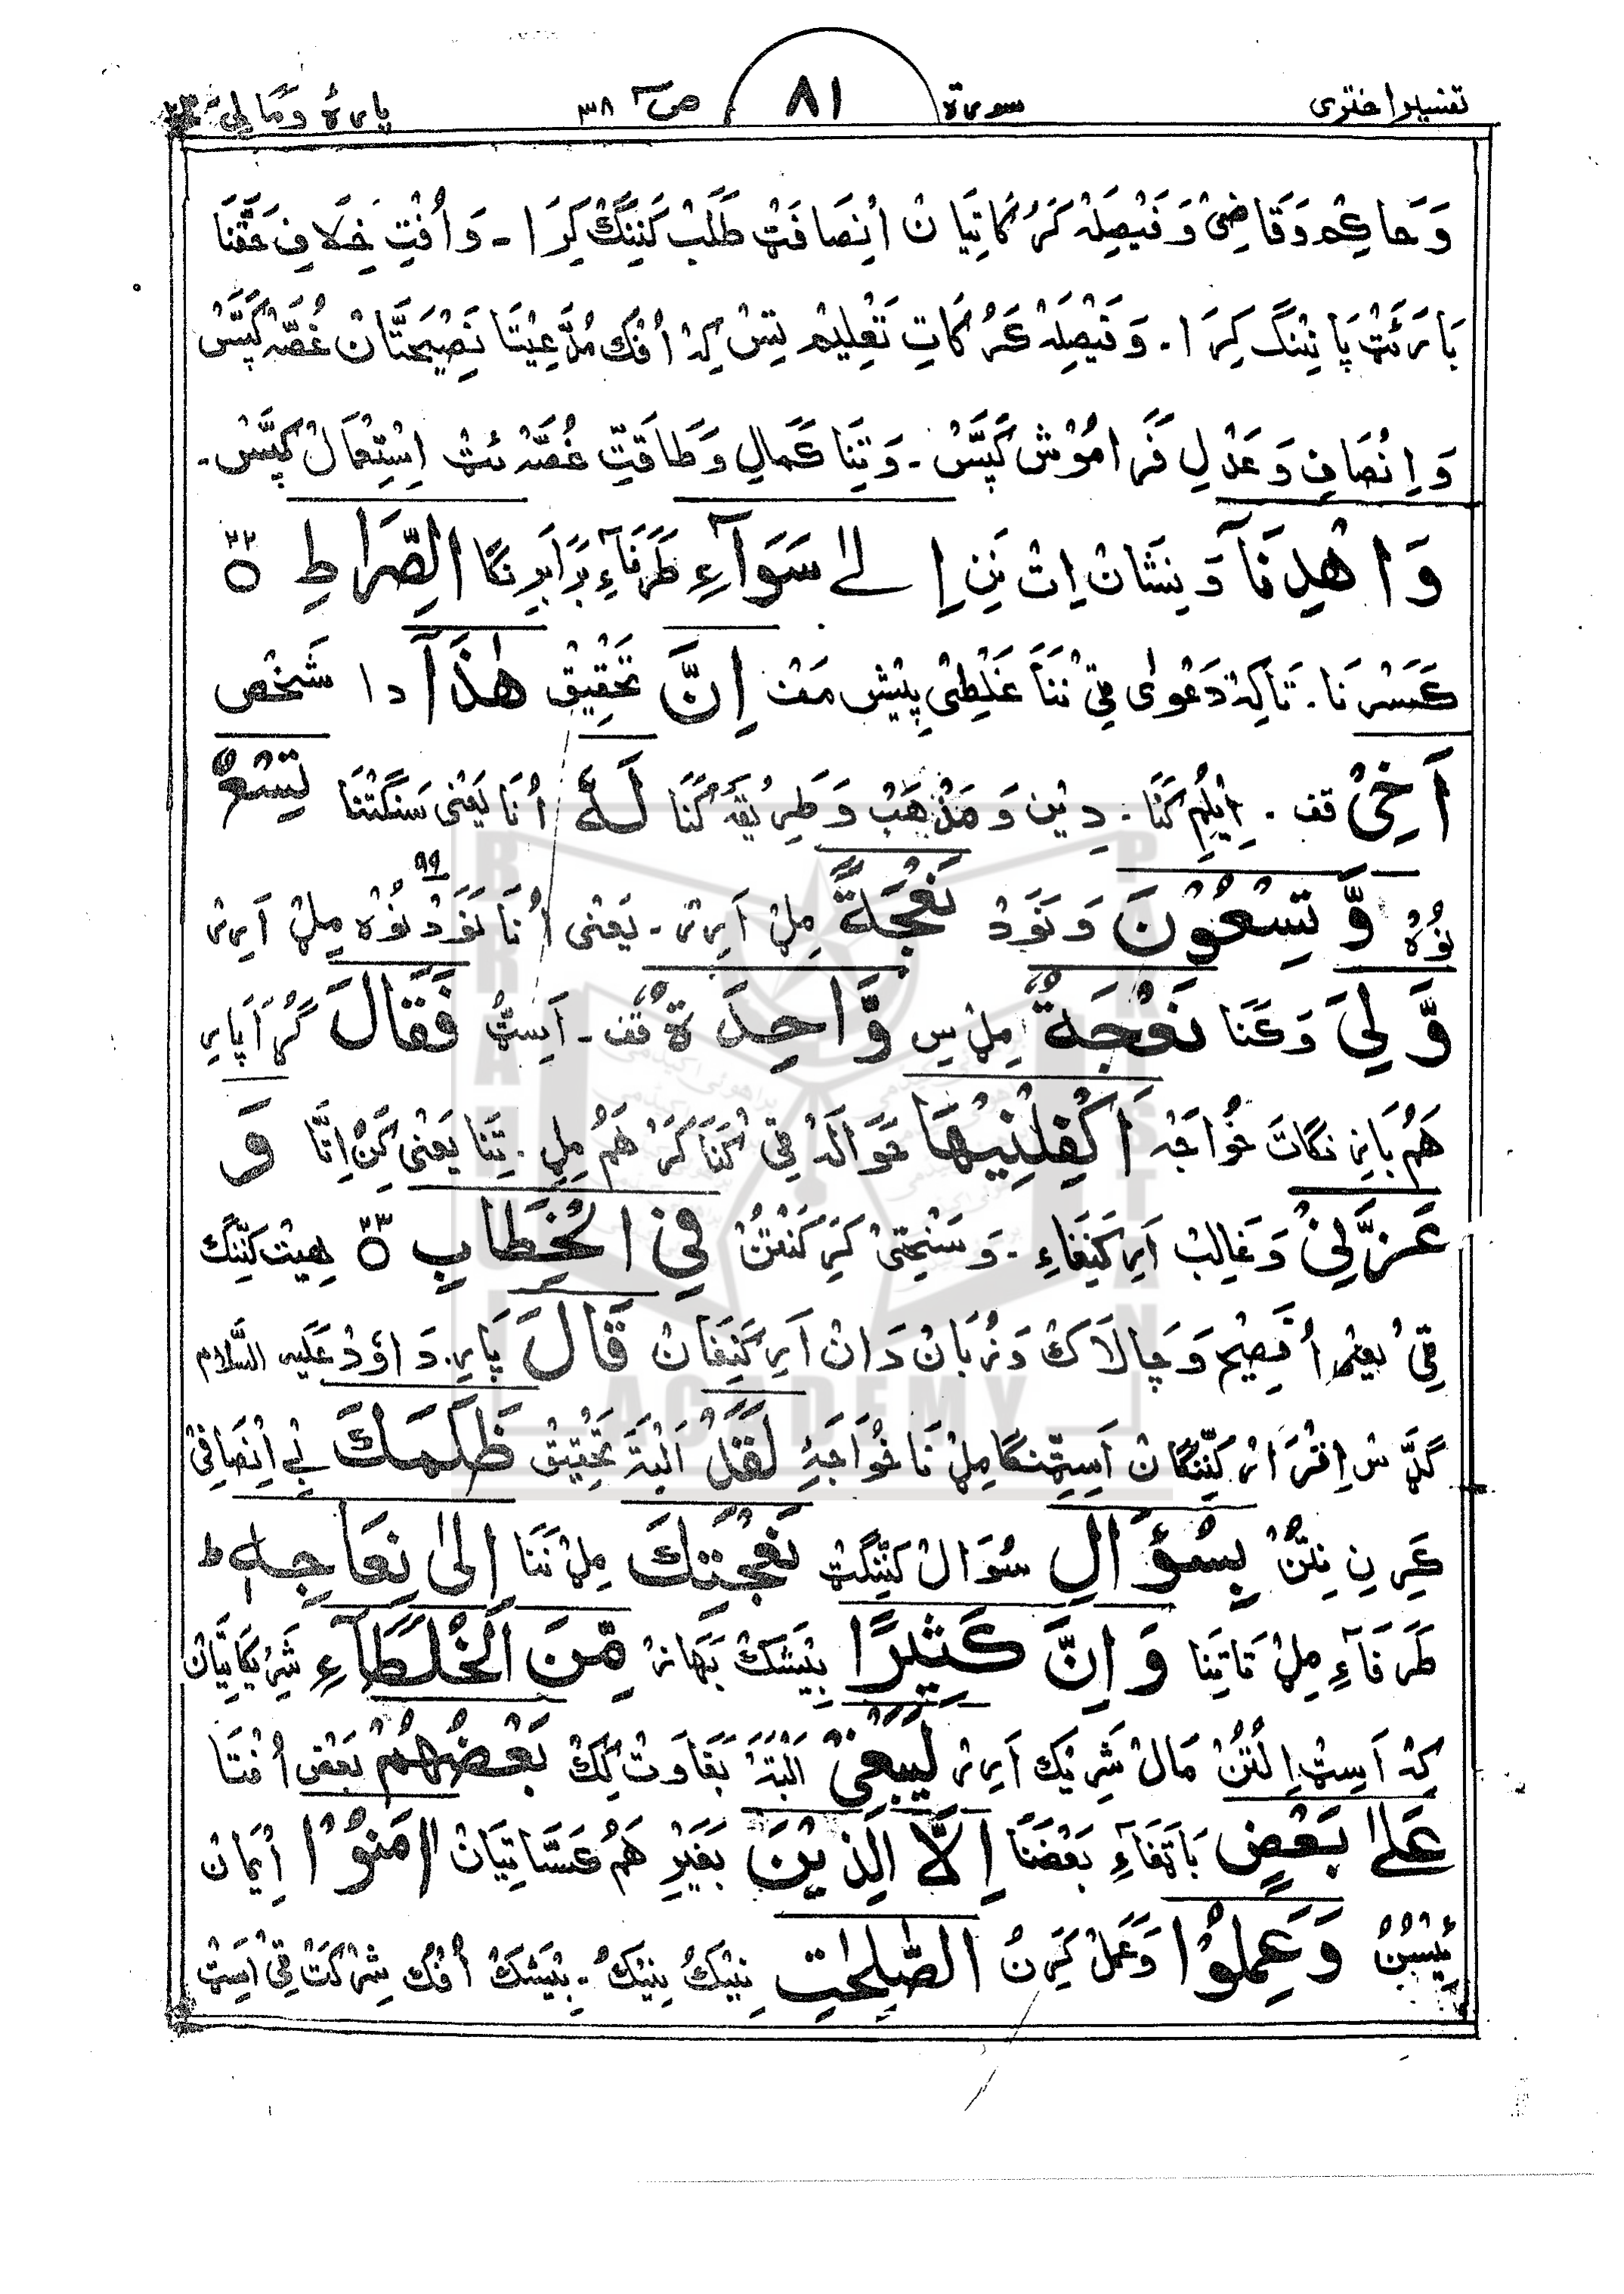 تفسیر اختری سورة ۸۱ صٓ ۳۸ پارہ وَمَا لِیَ ۲۳
وَحَاکِمْ وَقَاضِیْ وَفَیْصِلَہ کَرُکَاتِیَانْ اِنْصَافَتْ طَلَبْ کَنِنْگْ کِرَا - وَاُفْتِ خِلَافِ حَقَّنَا
بَارَئَتْ پَانِنْگ کِرَا - وَفَیْصِلَہْ کَرُکَاتِ تَعْلِیْم تِسْ کِہْ اُفْک مُدَّعِیْتَا نَصِیْحَتَّانْ غُصَّہْ کَپَّسْ
وَاِنْصَافِ وَعَدْلِ فَرَامُوْش کَپَّسْ - وَتِنَا کَمَالِ وَطَاقَتِّ غُصَّہْ ئَتْ اِسْتِعْمَالْ کَپَّسْ -
وَاهْدِنَآ وَنِشَانْ اِتْ نَنِ اِلٰی سَوَآءِ طَرَفَآءِ بَرَابَرِنْگَا الصِّرَاطِ ۝ ۲۲
کَسَرْنَا - تَاکِہْ دَعْوٰی ٹِیْ نَنَا غَلِطِیْ پِیْش مَفْ اِنَّ تَحْقِیْق هٰذَآ دَا شَخْص
اَخِیْ قف - اِیْلُمْ کَنَا - دِیْن وَمَذْهَبْ وَطَرِیْقَہ کَنَا لَهٗ اُنَا یَعْنِی سَنْگَتْنَا تِسْعٌ
نُوْہْ وَّتِسْعُوْنَ وَنَوَدْ نَعْجَةً مِلْ اَرِرْ - یَعْنِی اُنَا نَوَدْ نُوْہْ ۹۹ مِلْ اَرِرْ
وَّلِیَ وَکَنَا نَعْجَةٌ مِلْ سِ وَّاحِدَةٌ قف - اَسِٹْ فَقَالَ گُڑَا پَارِ
هَمُ بَازِنْگَاتَ خُوَاجَہْ اَکْفِلْنِیْهَا حَوَالَہْ ٹِیْ کَنَا کَرْ هَمُ مِلِ - تِنَا یَعْنِی کَنْ اِتَّا وَ
عَزَّنِیْ وَغَالِبْ اَرِ کَنِفَاءِ - وَسَخْتِیْ کَرِ کَنْتُنْ فِی الْخِطَابِ ۝ ۲۳ هِیْت کَنِّنْگ
ٹِیْ یَعْنِی اُ فَصِیْح وَچَالَاکْ وَزُبَانْ دَانْ اَرِ کَنِفَانْ قَالَ پَارِ - دَاؤُدْ عَلَیْہِ السَّلَام
گُڈَّ سْ اِقْرَارْ کَنِّنْگَانْ اَسِٹِنْگَا مِلْ نَا خُوَاجَہِ لَقَدْ اَلْبَتَہْ تَحْقِیْق ظَلَمَكَ بِے اِنْصَافِیْ
کَرِنِ نِتُنْ بِسُؤَالِ سُوَالْ کَنِّنْگَتْ نَعْجَتِكَ مِلْ نَنَا اِلٰی نِعَاجِهٖ ط
طَرَفَآءِ مِلْ تَاتِنَا وَاِنَّ کَثِیْرًا بِیْشَکْ بَھَازْ مِّنَ الْخُلَطَآءِ شَرِیْکَاتِیَانْ
کِہْ اَسِٹْ اِلُتُنْ مَالْ شَرِیْک اَرِرْ لَیَبْغِیْ اَلْبَتَہْ بَغَاوَتْ کِکْ بَعْضُهُمْ بَعْض اُفْتَا
عَلٰی بَعْضٍ بَاتَفَآءِ بَعْضَنَا اِلَّا الَّذِیْنَ بَغَیْرِ هَمُ کَسَّاتِیَانْ اٰمَنُوْا اِیْمَان
ئِیْسُنْ وَعَمِلُوا وَعَمَلْ کَرِنْ الصّٰلِحٰتِ نِیْکْ نِیْکْ - بِیْشَکْ اُفْکْ شِرْکَتْ ٹِیْ اَسِٹْ